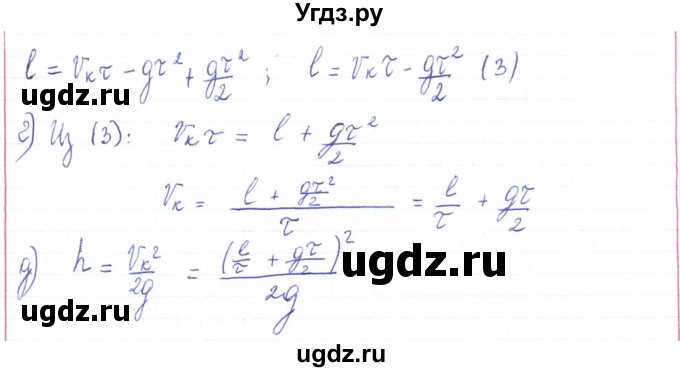 Угдз.ру
l = Vкτ - gτ² + gτ²/2 ; l = Vкτ - gτ²/2 (3)
ugdz.ru
ugdz.ru
г) Из (3): Vкτ = l + gτ²/2
Vк = (l + gτ²/2)/τ = l/τ + gτ/2
ugdz.ru
д) h = Vк²/2g = (l/τ + gτ/2)²/2g
ugdz.ru
ugdz.ru
ugdz.ru